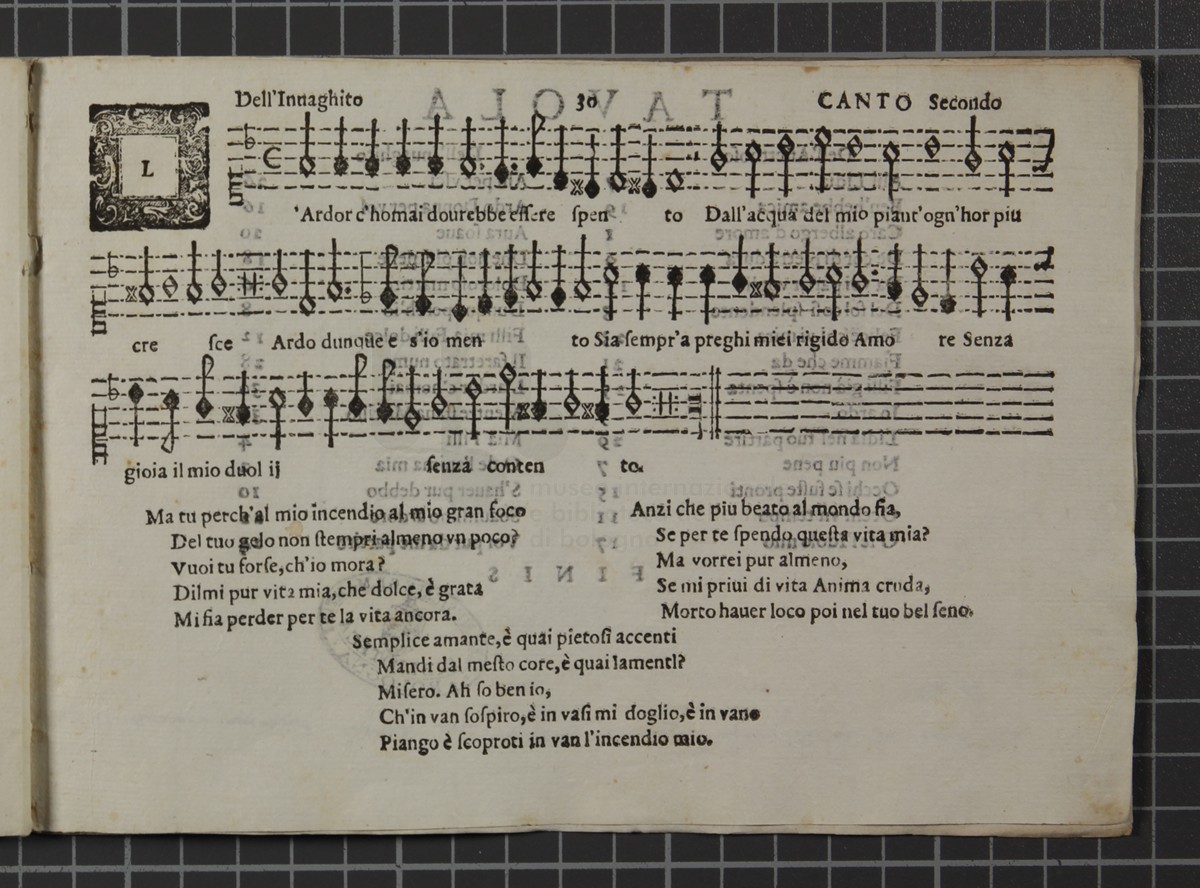 Dell'Inuaghito 30 CANTO Secondo
L
'Ardor c'homai dourebbe essere spen to Dall'acqua del mio piant'ogn'hor piu
cre sce Ardo dunque e s'io men to Sia sempr'a preghi miei rigido Amo re Senza
gioia il mio duol ij senza conten to.
Ma tu perch'al mio incendio al mio gran foco
Del tuo gelo non stempri almeno vn poco?
Vuoi tu forse, ch'io mora?
Dilmi pur vita mia, che dolce, è grata
Mi fia perder per te la vita ancora.
Anzi che piu beato al mondo fia,
Se per te spendo questa vita mia?
Ma vorrei pur almeno,
Se mi priui di vita Anima cruda,
Morto hauer loco poi nel tuo bel seno.
Semplice amante, è quai pietosi accenti
Mandi dal mesto core, è quai lamenti?
Misero. Ah so ben io,
Ch'in van sospiro, è in vasi mi doglio, è in vano
Piango è scoproti in van l'incendio mio.